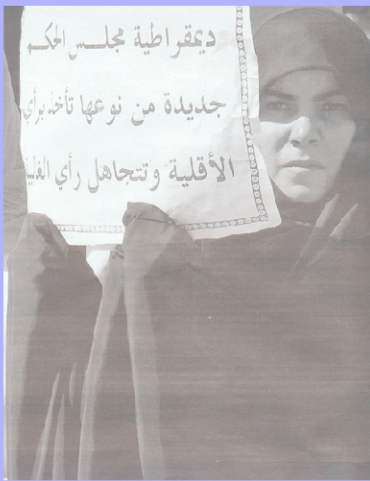 ديمقراطية مجلس الحكم
جديدة من نوعها تأخذ برأي
الأقلية وتتجاهل رأي